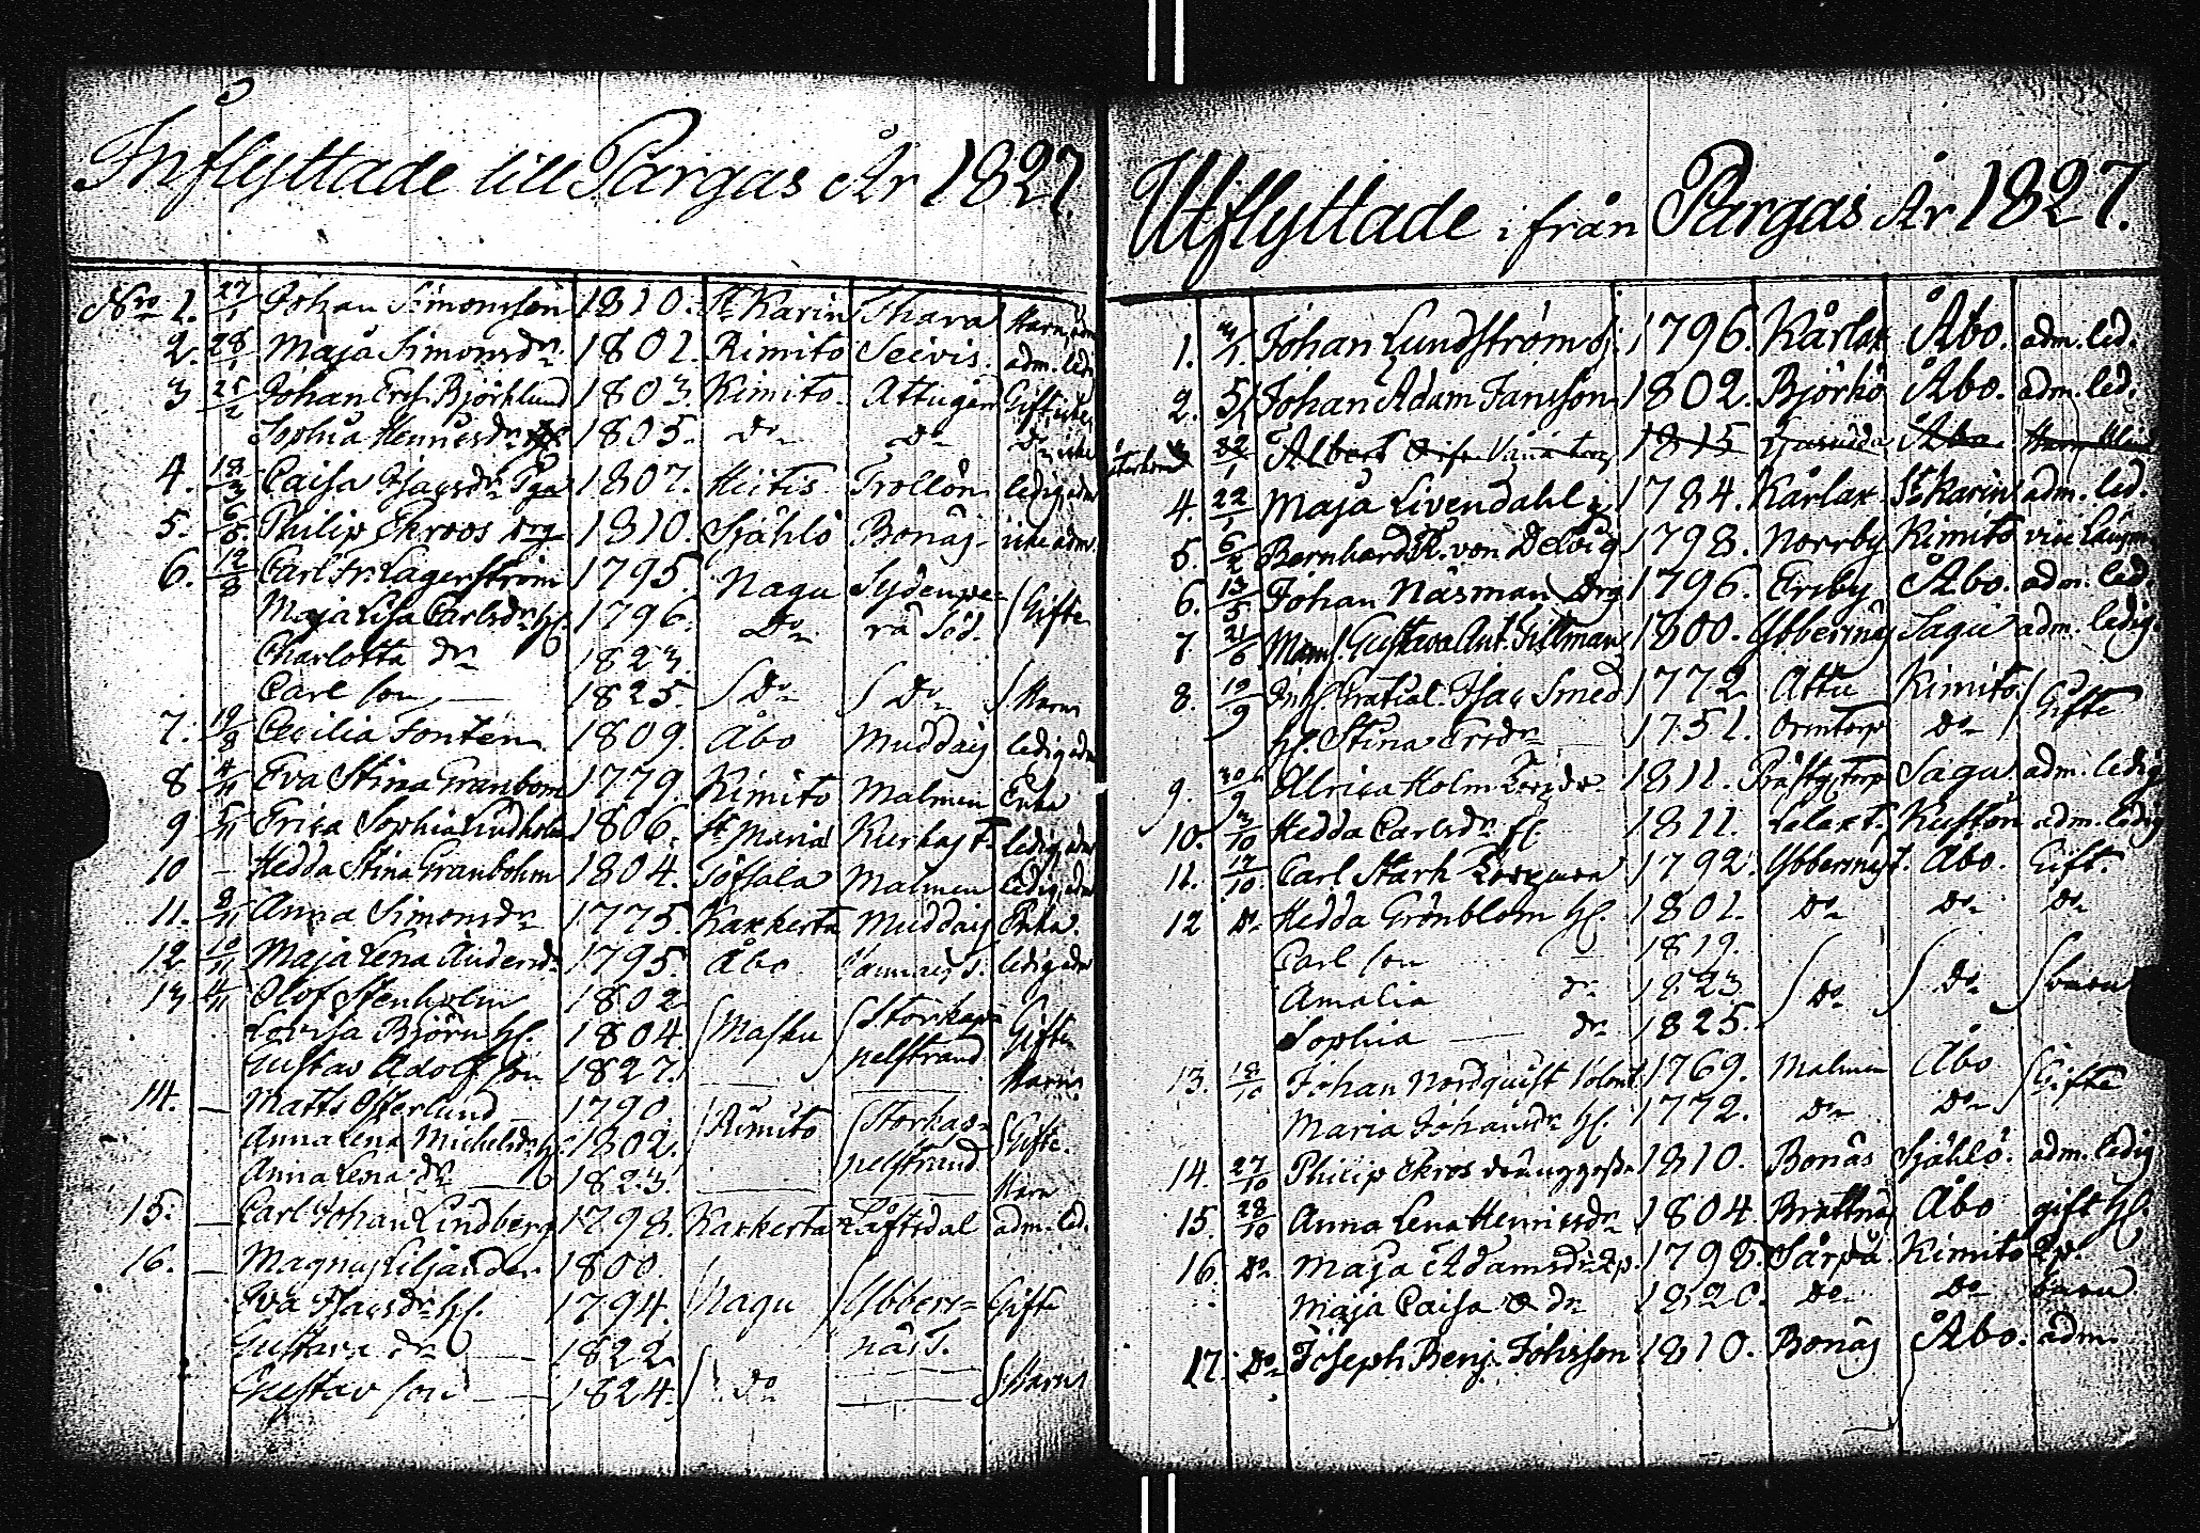 Inflyttade till Pargas År 1827.
Nro 1. 27/1 Johan Simonsson 1810. St Karin Skara Barn, adm
2. 28/1 Maja Simonsdr 1801. Rimito Seivis. adm. ledi
3 25/2 Johan Ersf. Björklund 1803. Kimito. Attuger Gift icke
Sophia Henricsdr 1805. Do Do Do icke
4. 18/3 Caisa Isacsdr Pga 1807. Hiitis Trollön ledig adm
5. 6/5. Philip Ekroos drg 1810. Sjählö Bonäs icke adm.
6. 12/8 Carl Fr. Lagerström 1795. Nagu Sydenpe= Gifte
Maja Lisa Carlsdr hf. 1796. Do rä Söd.
Charlotta dr 1823.
Carl son — 1825. Do Do Barn
7. 19/8 Cecilia Fonten 1809. Åbo Muddais ledig adm
8 4/11 Eva Stina Granbom 1779. Kimito Malmen Enka
9 5/11 Erica Sophia Lindholm 1806. St Mariä Kurkas T. ledig adm
10 — Hedda Stina Granbohm 1804. Töfsala Malmen ledig adm
11. 9/11 Anna Simonsdr 1775. Kakkerta Muddais Enka.
12 10/11 Maja Lena Andersdr 1795. Åbo ledig adm
13 4/11 Olof Stenholm 1802
Lovisa Björn hf. 1804. Masku Storkap= Gifte
Gustav Adolf son 1827. pelstrand. Barn
14. — Matts Österlund 1790.
Anna Lena Michelsdr hf. 1802. Rimito Storkap= Gifte.
Anna Lena dr — 1823. pelstrand Barn
15. — Carl Johan Lindberg 1798. Kakkerta Löftsdal adm. led.
16. — Magnus Liljander 1800.
Eva Isacsdr hf. 1794. Nagu Ybbers= Gifte
Gustava dr — 1822 näs T.
Gustav son — 1824. Do Barn
Utflyttade ifrån Pargas År 1827.
1. 3/1. Johan Lundström sj. 1796. Kårlax Åbo. adm. led.
2. 5/1 Johan Adam Jansson 1802. Björkö Åbo. adm. led.
3 22/1 Albert 1815 Åbo
4. 22/1 Maja Livendahl 1784. Kårlax St Karins adm. led.
5. 6/2 Bernhard R. von Delvig 1798. Norrby Rimito vice
6. 13/5 Johan Näsman Drg 1796. Ersby Åbo. adm. led.
7. 21/6 Mams. Gustava Ant. Tillman 1800. Ybbernäs Sagu adm. ledig.
8. 19/9 Gratial. Isac Smed 1772 Attu Kimito. Gifte
hf. Stina Ersdr 1751. Ormtorp Do
9. 30/9 Ulrica Holm 1811. Prästg. Torp Sagu adm. ledig
10. 3/10 Hedda Carlsdr fl. 1811. Lelax t. Kustön adm. ledig
11. 17/10. Carl Stark 1792. Ybbernäs T. Åbo. Gift.
12 Do Hedda Grönblom hf. 1801. Do Do Do
Carl son 1819.
Amalia dr 1823. Do Do barn
Sophia — dr 1825.
13. 18/10 Johan Nordquist Volont. 1769. Malmen Åbo Gifte
Maria Johansdr hf. 1772. Do Do
14. 27/10 Philip Ekros 1810. Bonäs Sjählö. adm. ledig
15. 28/10 Anna Lena Henricsdr 1804. Brattnäs Åbo gift hf.
16. Do Maja Adamsdr 1798. Särpå. Kimito
Maja Caisa dr 1820. Do Do barn
17. Do Joseph Benj. Johsson 1810. Bonäs Åbo. adm.